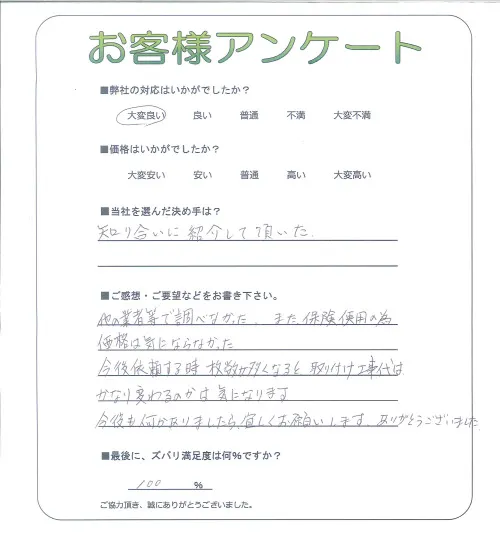 お客様アンケート
■弊社の対応はいかがでしたか？
大変良い 良い 普通 不満 大変不満
■価格はいかがでしたか？
大変安い 安い 普通 高い 大変高い
■当社を選んだ決め手は？
知り合いに紹介して頂いた.
■ご感想・ご要望などをお書き下さい。
他の業者等で調べなかった、また保険使用の為
価格は気にならなかった
今後依頼する時 枚数が多くなると 取り付け工事代は
かなり変わるのかは気になります
今後も何かありましたら、宜しくお願いします、ありがとうございました
■最後に、ズバリ満足度は何%ですか？
100 %
ご協力頂き、誠にありがとうございました。